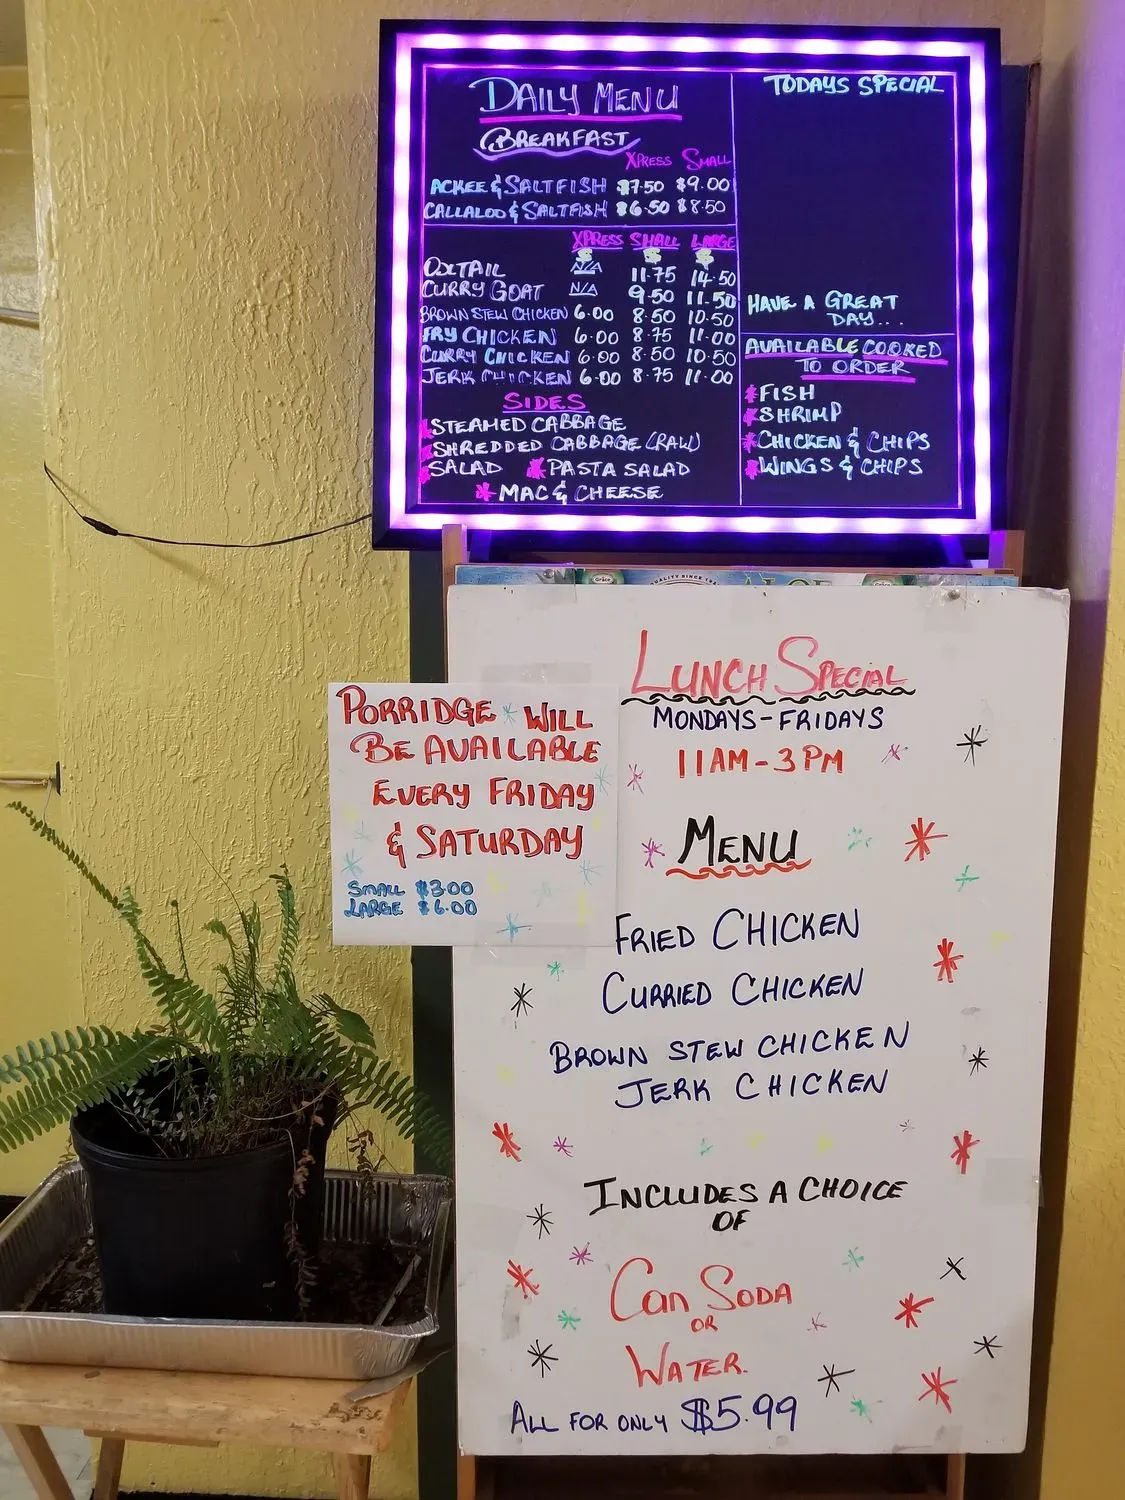 DAILY MENU
BREAKFAST
XPRESS SMALL
ACKEE & SALTFISH $7.50 $9.00
CALLALOO & SALTFISH $6.50 $8.50
XPRESS SMALL LARGE
$ $ $
OXTAIL N/A 11.75 14.50
CURRY GOAT N/A 9.50 11.50
BROWN STEW CHICKEN 6.00 8.50 10.50
FRY CHICKEN 6.00 8.75 11.00
CURRY CHICKEN 6.00 8.50 10.50
JERK CHICKEN 6.00 8.75 11.00
SIDES
STEAMED CABBAGE
SHREDDED CABBAGE (RAW)
SALAD * PASTA SALAD
* MAC & CHEESE
TODAYS SPECIAL
HAVE A GREAT
DAY...
AVAILABLE COOKED
TO ORDER
* FISH
* SHRIMP
* CHICKEN & CHIPS
* WINGS & CHIPS
Grace
QUALITY SINCE
ALOE
PORRIDGE WILL
BE AVAILABLE
EVERY FRIDAY
& SATURDAY
SMALL $3.00
LARGE $6.00
LUNCH SPECIAL
MONDAYS-FRIDAYS
11AM-3PM
MENU
FRIED CHICKEN
CURRIED CHICKEN
BROWN STEW CHICKEN
JERK CHICKEN
INCLUDES A CHOICE
OF
Can SODA
OR
WATER.
ALL FOR ONLY $5.99